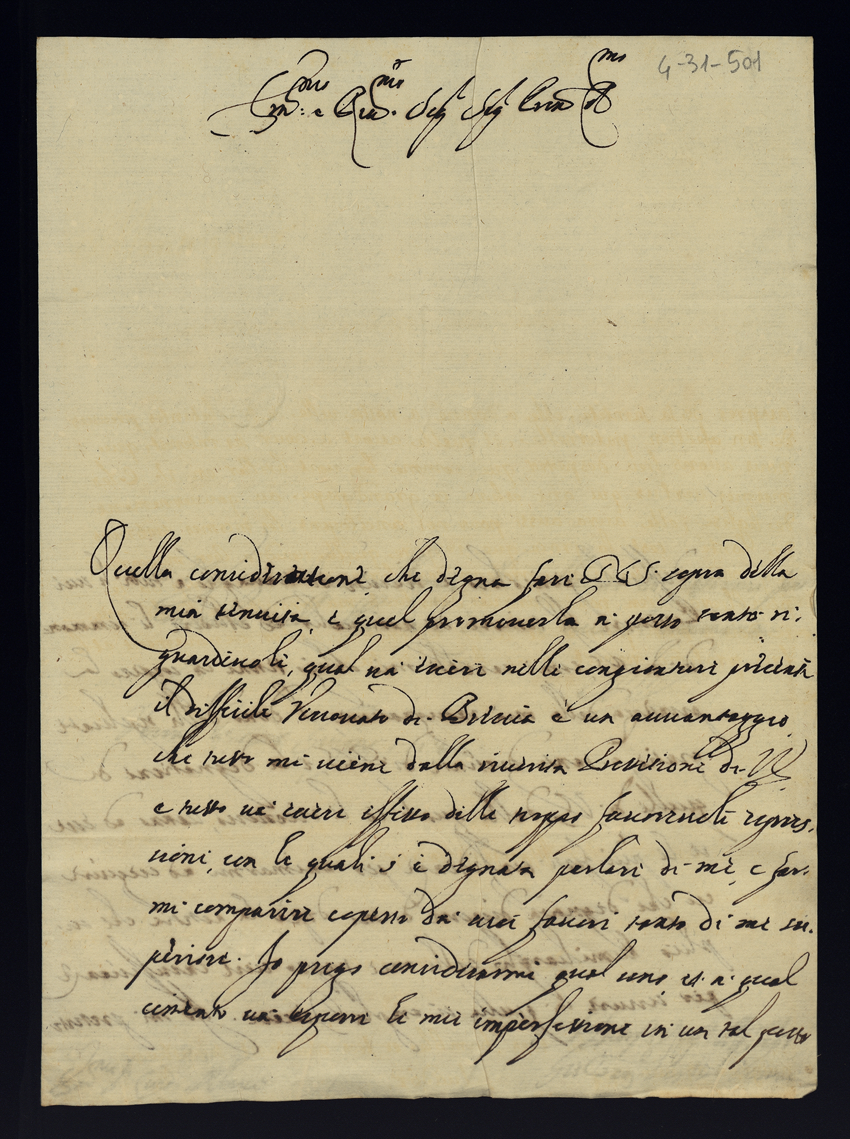 4-31-501
Em.mo e Rev.mo Sig.r Sig.r P.ron Col.mo
Quella consideratione che degna fare V.S. sopra della
mia tenuità, e quel promoverla a posto tanto ri-
guardevole, qual và essere nelle congionture presenti
il difficile Vescovato di Brescia è un avvantaggio
che tutto mi viene dalla riverita Protetione di V.
e tutto và essere effetto delle troppo favorevoli espres-
sioni, con le quali s'è degnata parlare di me, e far-
mi comparire coperto da suoi favori tanto di me su-
periore. Io prego considerarmi qual sono et a qual
cimento và esporre le mie imperfettione in un tal posto